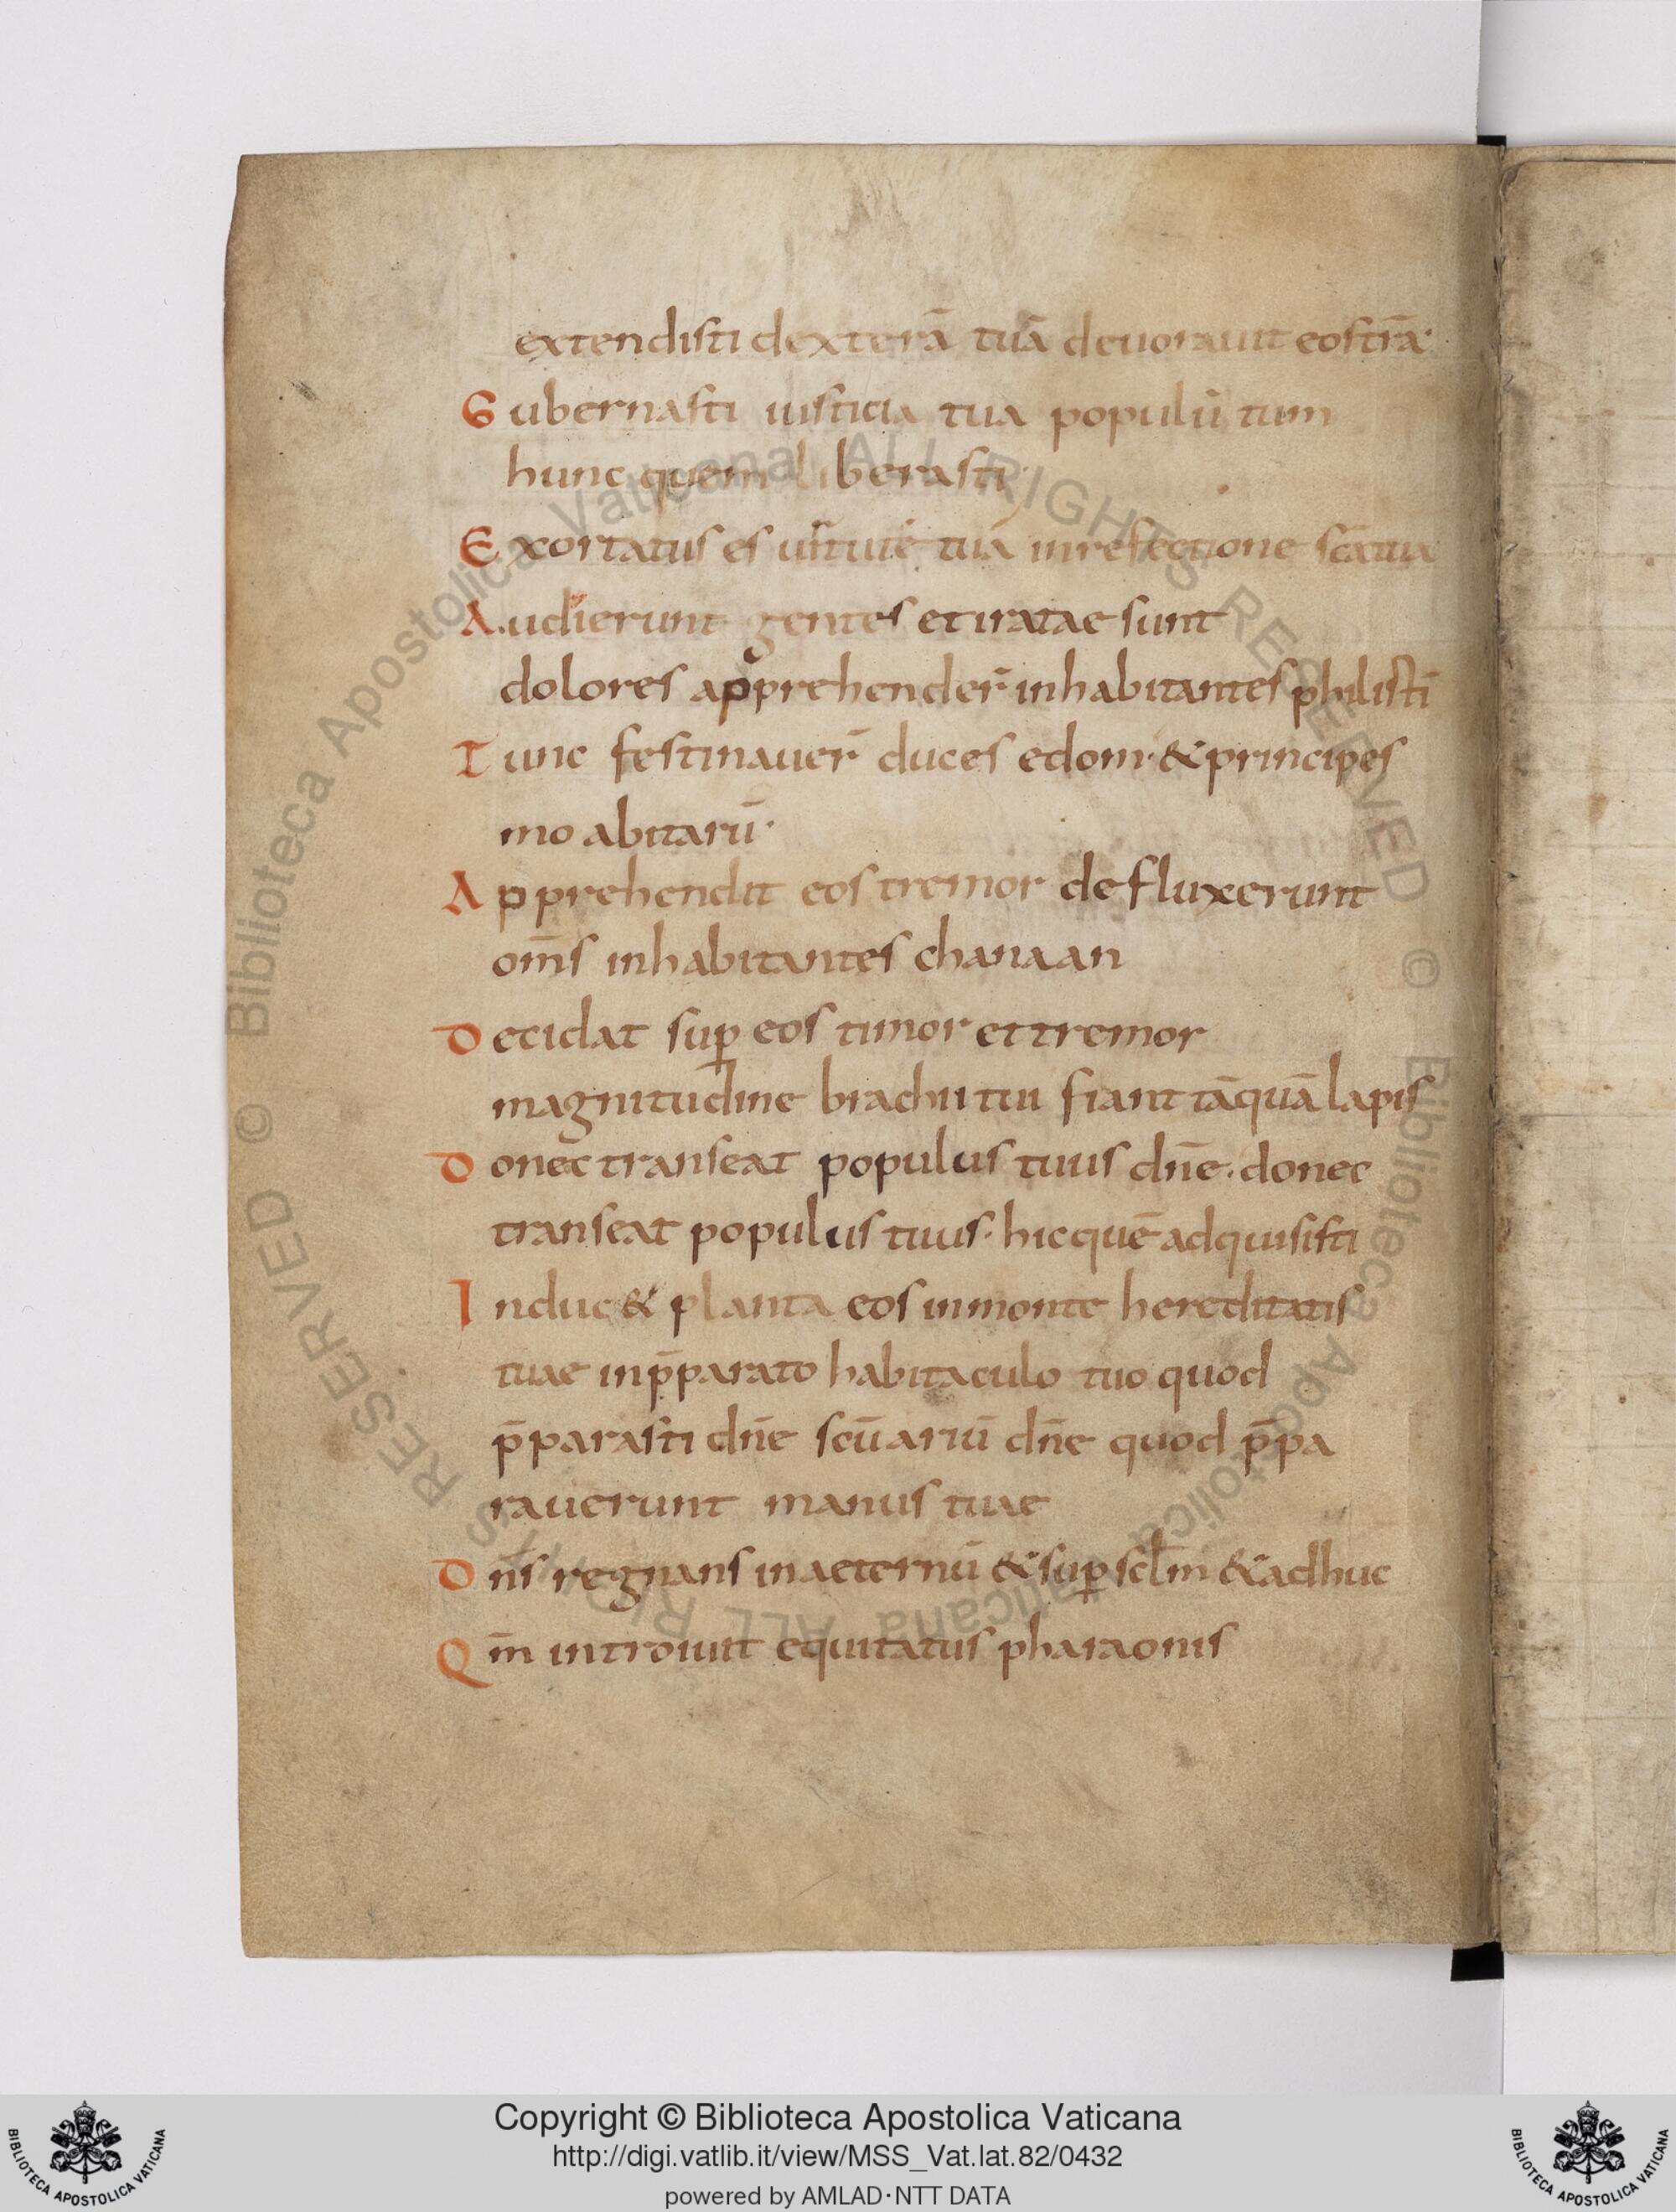 extendisti dexterā tuā deuorauit eos trā·
Gubernasti iusticia tua populū tuum
hunc quem liberasti·
Exortatus es uirtute tuā in refectione scā tua
Audierunt gentes et iratae sunt
dolores apprehender̄ inhabitantes philisti
Tunc festinauer̄ duces edom· & principes
moabitarū·
Apprehendit eos tremor defluxerunt
om̄s inhabitantes chanaan
Decidat sup̱ eos timor et tremor
magnitudine brachii tui fiant tāquā lapis
Donec transeat populus tuus dn̄e· donec
transeat populus tuus· hic quē adquisisti
Induc & planta eos in monte hereditatis
tuae in p̄parato habitaculo tuo quod
p̄parasti dn̄e scūariū dn̄e quod p̄pa
rauerunt manus tuae
Dn̄s regnans in aeternū & sup̱ sclm̄ & adhuc
Qm̄ introiuit equitatus pharaonis
© Biblioteca Apostolica Vaticana ALL RIGHTS RESERVED © Biblioteca Apostolica Vaticana ALL RIGHTS RESERVED
Copyright © Biblioteca Apostolica Vaticana
http://digi.vatlib.it/view/MSS_Vat.lat.82/0432
powered by AMLAD·NTT DATA
BIBLIOTECA APOSTOLICA VATICANA
BIBLIOTECA APOSTOLICA VATICANA